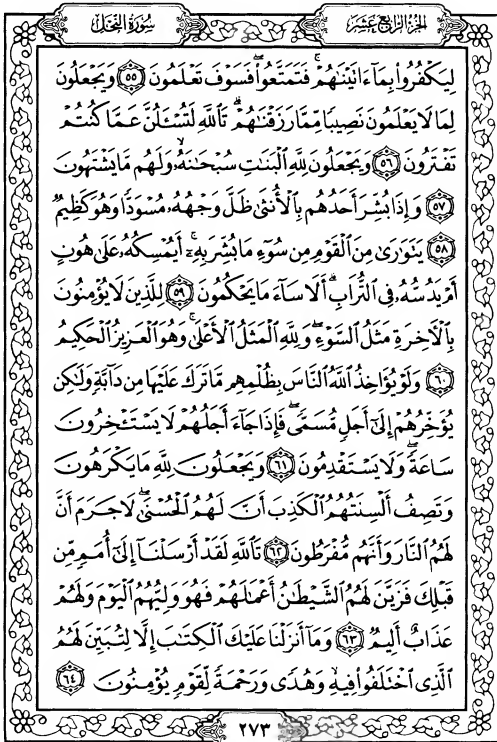 الجزء الرابع عشر
سورة النحل
لِيَكْفُرُوا۟ بِمَآ ءَاتَيْنَـٰهُمْ ۚ فَتَمَتَّعُوا۟ ۖ فَسَوْفَ تَعْلَمُونَ ٥٥ وَيَجْعَلُونَ
لِمَا لَا يَعْلَمُونَ نَصِيبًا مِّمَّا رَزَقْنَـٰهُمْ ۗ تَٱللَّهِ لَتُسْـَٔلُنَّ عَمَّا كُنتُمْ
تَفْتَرُونَ ٥٦ وَيَجْعَلُونَ لِلَّهِ ٱلْبَنَـٰتِ سُبْحَـٰنَهُۥ ۙ وَلَهُم مَّا يَشْتَهُونَ
٥٧ وَإِذَا بُشِّرَ أَحَدُهُم بِٱلْأُنثَىٰ ظَلَّ وَجْهُهُۥ مُسْوَدًّا وَهُوَ كَظِيمٌ
٥٨ يَتَوَٰرَىٰ مِنَ ٱلْقَوْمِ مِن سُوٓءِ مَا بُشِّرَ بِهِۦٓ ۚ أَيُمْسِكُهُۥ عَلَىٰ هُونٍ
أَمْ يَدُسُّهُۥ فِى ٱلتُّرَابِ ۗ أَلَا سَآءَ مَا يَحْكُمُونَ ٥٩ لِلَّذِينَ لَا يُؤْمِنُونَ
بِٱلْـَٔاخِرَةِ مَثَلُ ٱلسَّوْءِ ۖ وَلِلَّهِ ٱلْمَثَلُ ٱلْأَعْلَىٰ ۚ وَهُوَ ٱلْعَزِيزُ ٱلْحَكِيمُ
٦٠ وَلَوْ يُؤَاخِذُ ٱللَّهُ ٱلنَّاسَ بِظُلْمِهِم مَّا تَرَكَ عَلَيْهَا مِن دَآبَّةٍ وَلَـٰكِن
يُؤَخِّرُهُمْ إِلَىٰٓ أَجَلٍ مُّسَمًّى ۖ فَإِذَا جَآءَ أَجَلُهُمْ لَا يَسْتَـْٔخِرُونَ
سَاعَةً ۖ وَلَا يَسْتَقْدِمُونَ ٦١ وَيَجْعَلُونَ لِلَّهِ مَا يَكْرَهُونَ
وَتَصِفُ أَلْسِنَتُهُمُ ٱلْكَذِبَ أَنَّ لَهُمُ ٱلْحُسْنَىٰ ۖ لَا جَرَمَ أَنَّ
لَهُمُ ٱلنَّارَ وَأَنَّهُم مُّفْرَطُونَ ٦٢ تَٱللَّهِ لَقَدْ أَرْسَلْنَآ إِلَىٰٓ أُمَمٍ مِّن
قَبْلِكَ فَزَيَّنَ لَهُمُ ٱلشَّيْطَـٰنُ أَعْمَـٰلَهُمْ فَهُوَ وَلِيُّهُمُ ٱلْيَوْمَ وَلَهُمْ
عَذَابٌ أَلِيمٌ ٦٣ وَمَآ أَنزَلْنَا عَلَيْكَ ٱلْكِتَـٰبَ إِلَّا لِتُبَيِّنَ لَهُمُ
ٱلَّذِى ٱخْتَلَفُوا۟ فِيهِ ۙ وَهُدًى وَرَحْمَةً لِّقَوْمٍ يُؤْمِنُونَ ٦٤
٢٧٣